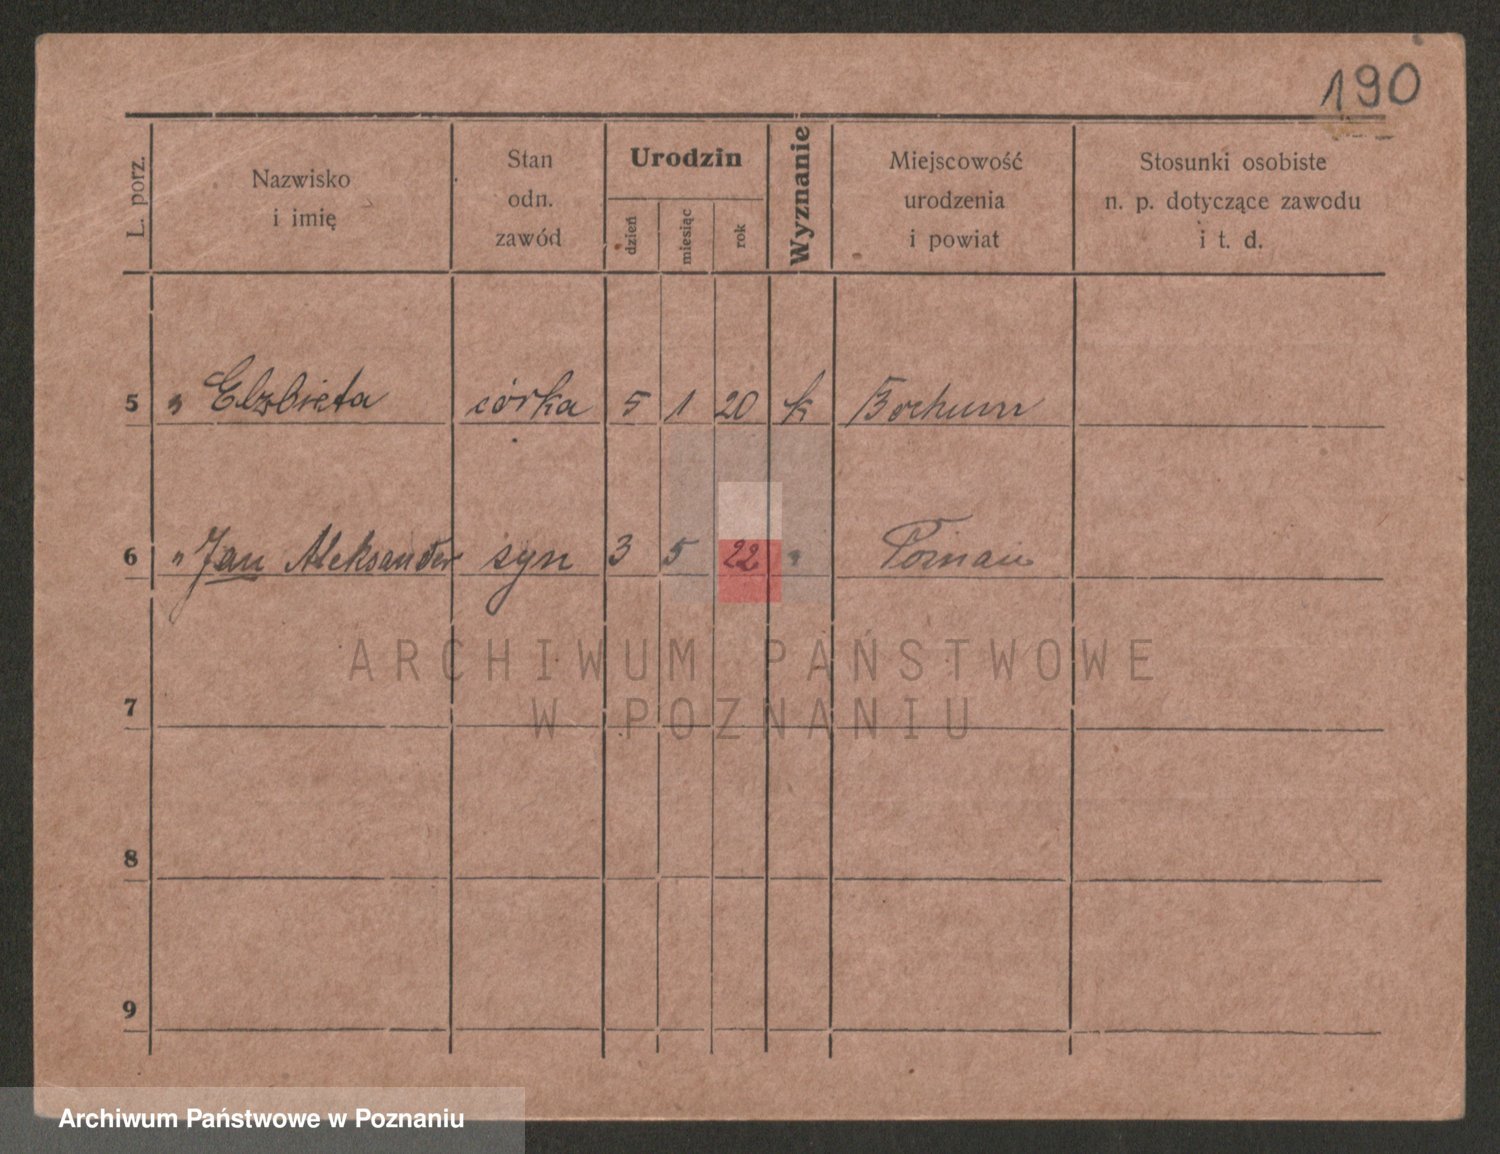 190
L. porz.
Nazwisko
i imię
Stan
odn.
zawód
Urodzin
dzień
miesiąc
rok
Wyznanie
Miejscowość
urodzenia
i powiat
Stosunki osobiste
n. p. dotyczące zawodu
i t. d.
5 " Elzbieta córka 5 1 20 k Bochum
6 " Jan Aleksander syn 3 5 22 " Poznań
7
8
9
ARCHIWUM PAŃSTWOWE
W POZNANIU
Archiwum Państwowe w Poznaniu